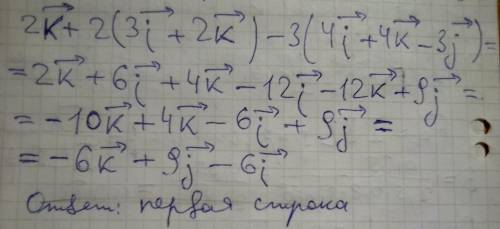 2k⃗ + 2(3i⃗ + 2k⃗) - 3(4i⃗ + 4k⃗ - 3j⃗) =
= 2k⃗ + 6i⃗ + 4k⃗ - 12i⃗ - 12k⃗ + 9j⃗ =
= -10k⃗ + 4k⃗ - 6i⃗ + 9j⃗ =
= -6k⃗ + 9j⃗ - 6i⃗
Ответ: первая строка